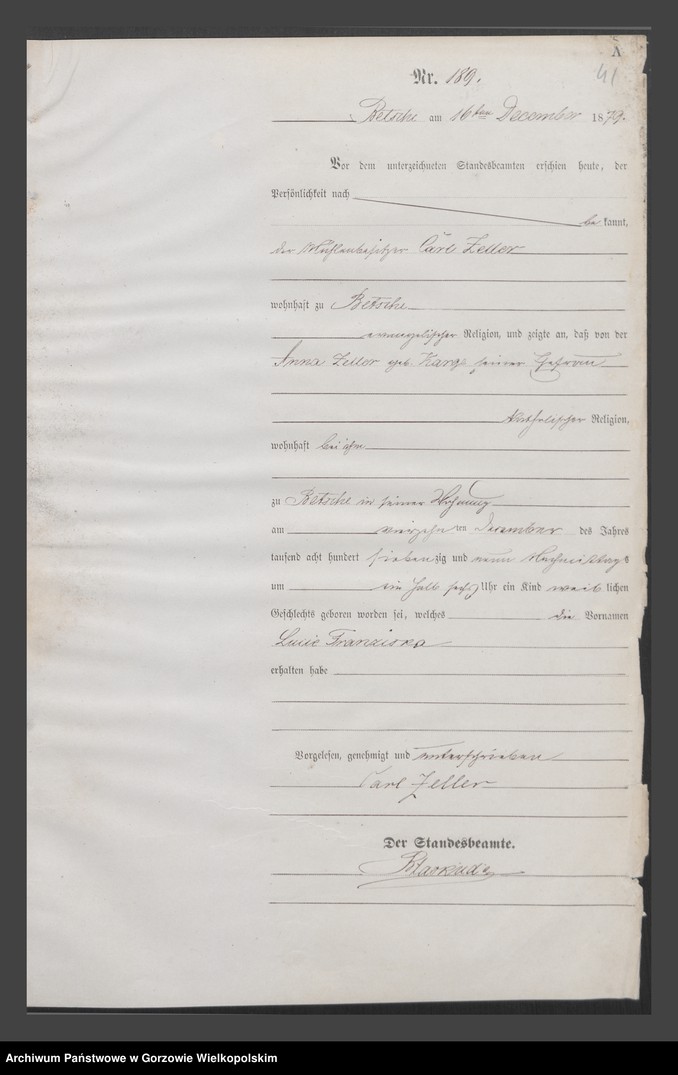 A
41
Nr. 189.
Betsche am 16ten December 1879.
Vor dem unterzeichneten Standesbeamten erschien heute, der
Persönlichkeit nach
be kannt,
der Mühlenbesitzer Carl Zeller
wohnhaft zu Betsche
evangelischer Religion, und zeigte an, daß von der
Anna Zeller geb. Karge seiner Ehefrau
katholischer Religion,
wohnhaft bei ihm
zu Betsche in seiner Wohnung
am vierzehn ten December des Jahres
tausend acht hundert siebenzig und neun Nachmittags
um ein halb sechs Uhr ein Kind weib lichen
Geschlechts geboren worden sei, welches die Vornamen
Lucie Franziska
erhalten habe
Vorgelesen, genehmigt und unterschrieben
Carl Zeller
Der Standesbeamte.
Archiwum Państwowe w Gorzowie Wielkopolskim